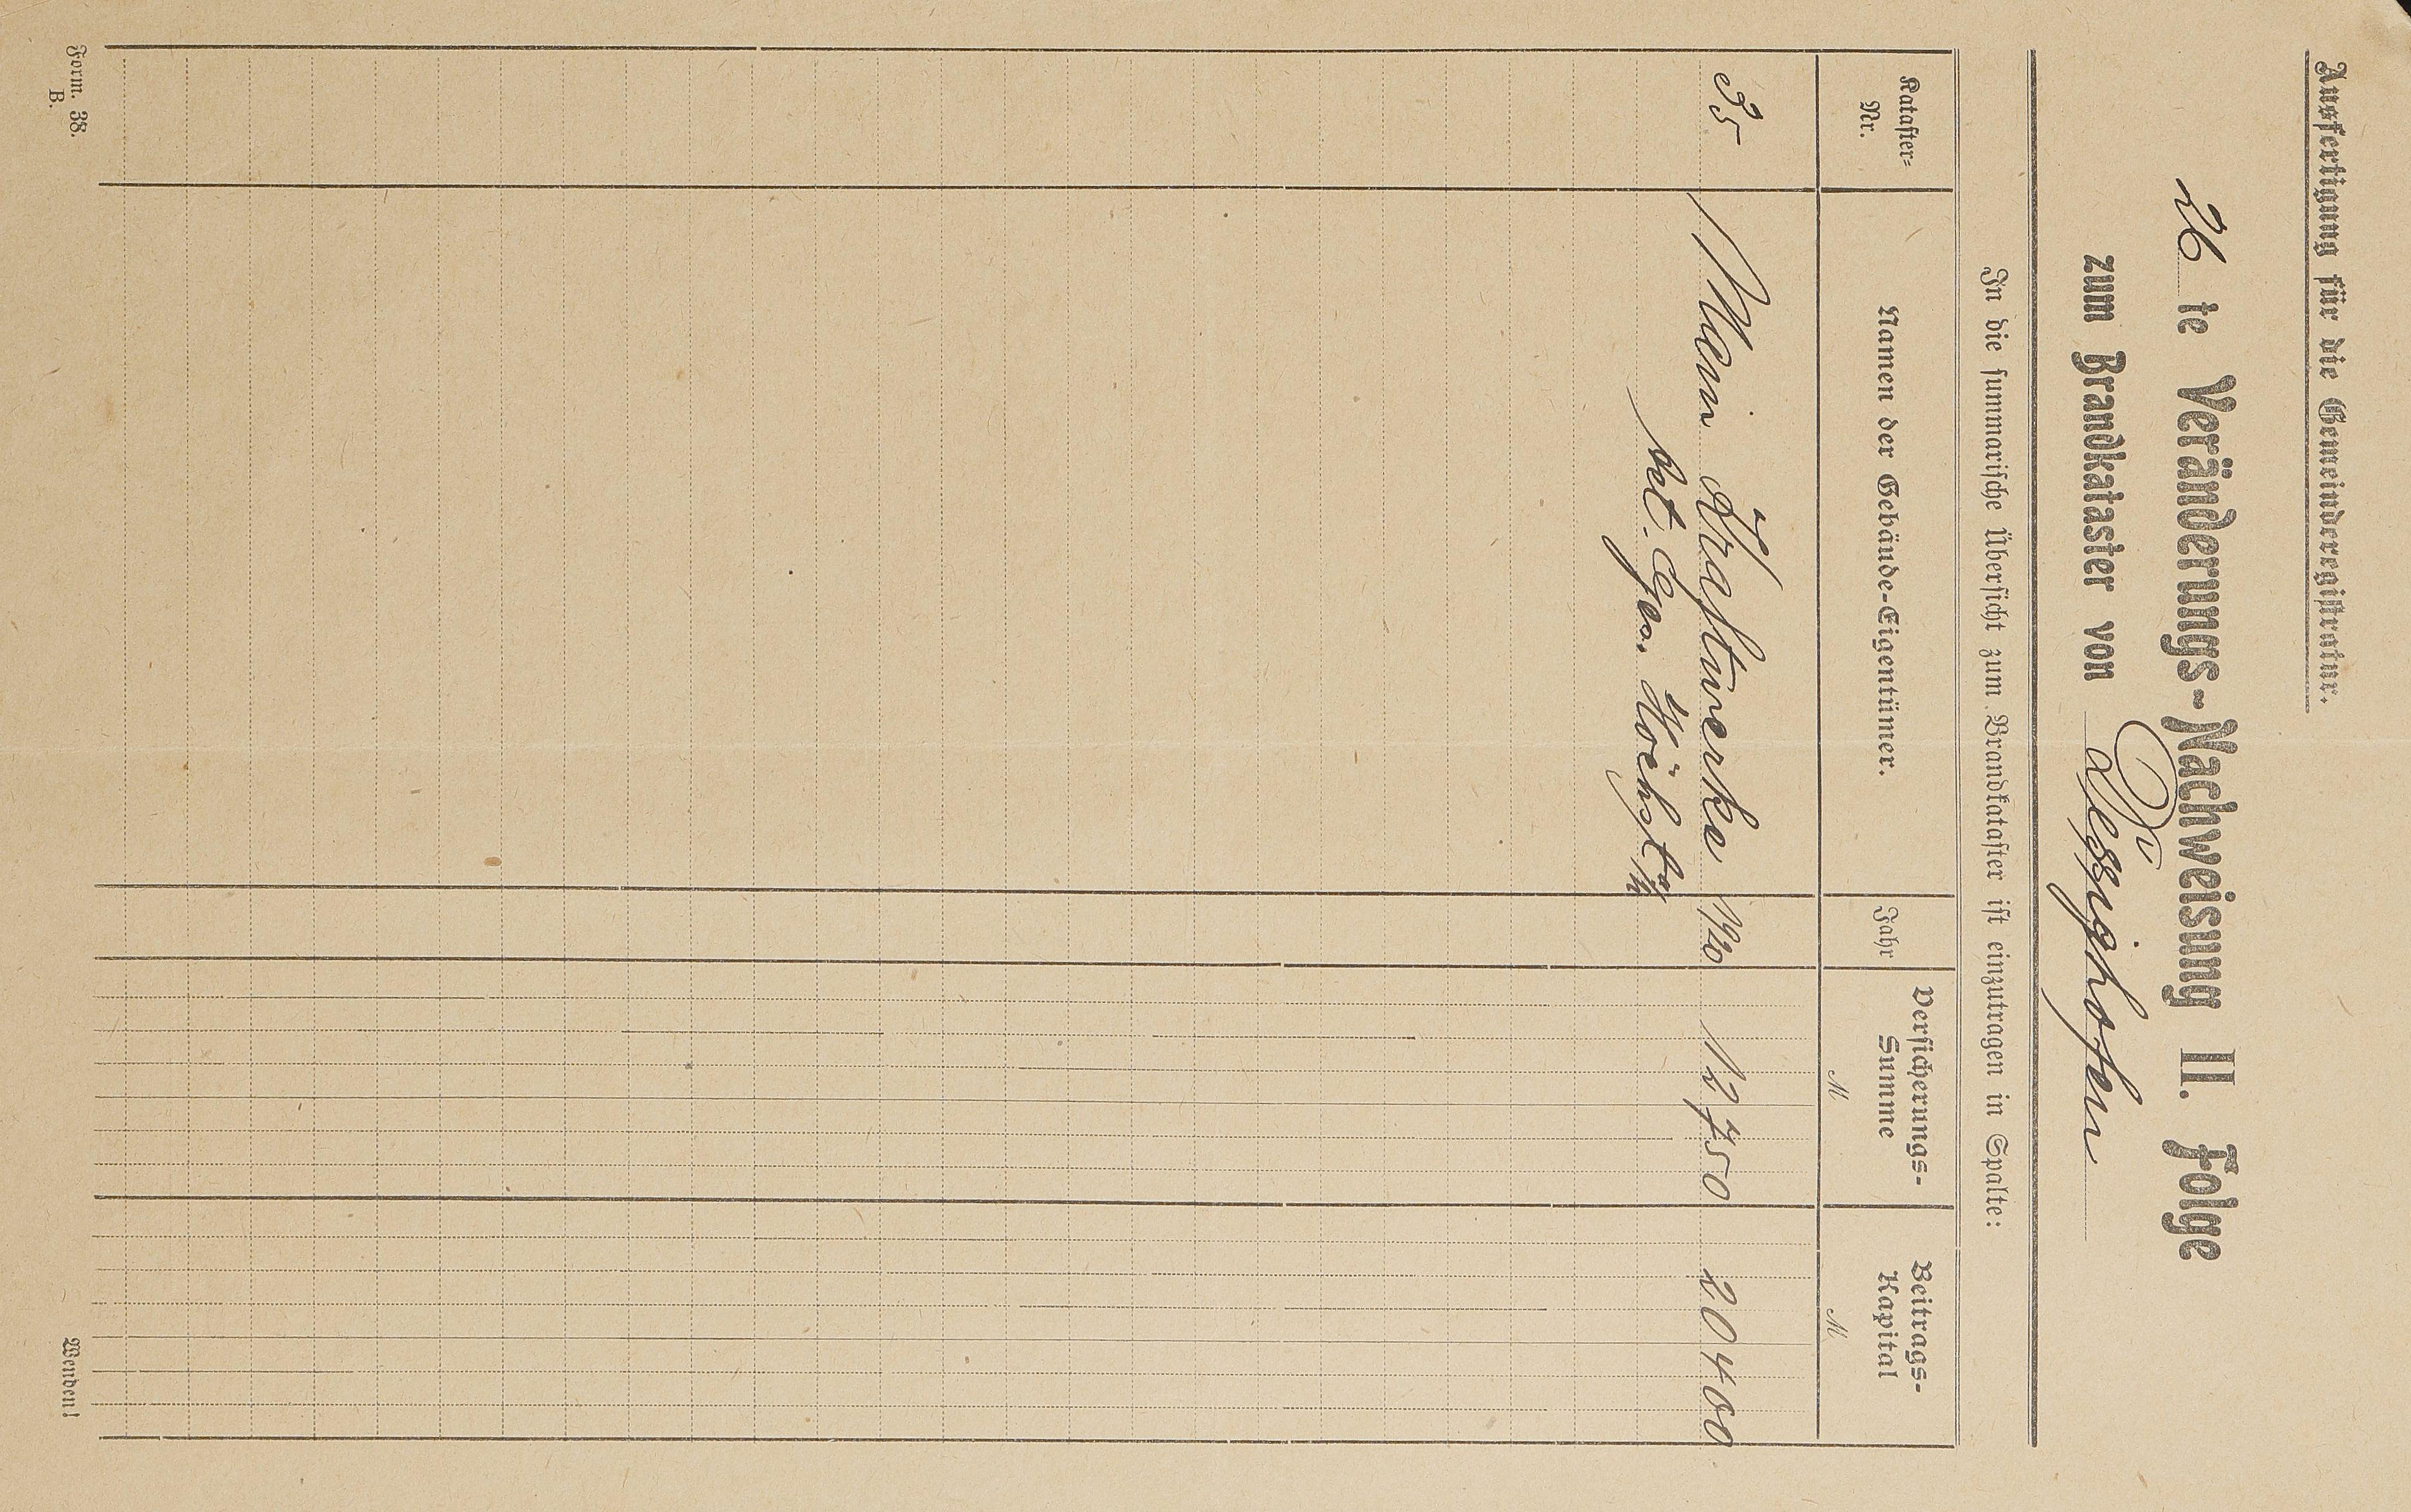 Ausfertigung für die Gemeinderegistratur.
26 te Veränderungs-Nachweisung II. Folge
zum Brandkataster von Dessighofen
In die summarische Übersicht zum Brandkataster ist einzutragen in Spalte:
Kataster- Nr.
Namen der Gebäude-Eigentümer.
Jahr
Versicherungs- Summe
M
Beitrags- Kapital
M
35 Main Kraftwerke 1920 12750 20400
Act. Ges. Höchst a/M
Form. 38.
B.
Wenden!